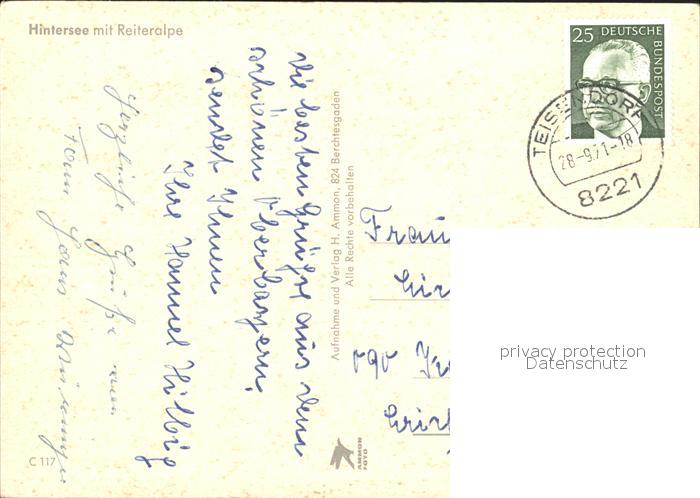 Hintersee mit Reiteralpe
25 DEUTSCHE
BUNDESPOST
TEISENDORF
28-9.71-18
8221
Die besten Grüße aus dem
schönen Oberbayern
sendet Ihnen
Ihre Hannel Hilbig
Herzliche Grüße
Aufnahme und Verlag H. Ammon, 824 Berchtesgaden
Alle Rechte vorbehalten
Frau
090
AMMON
FOTO
C 117
privacy protection
Datenschutz